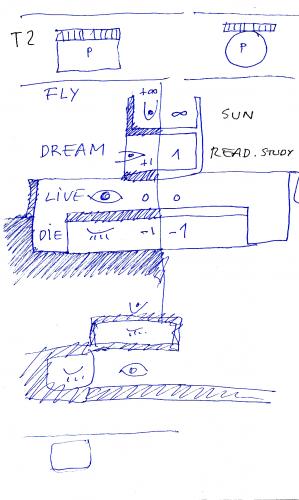 T2
P P
FLY
+∞ ∞ SUN
DREAM +1 1 READ. STUDY
LIVE 0 0
DIE -1 -1